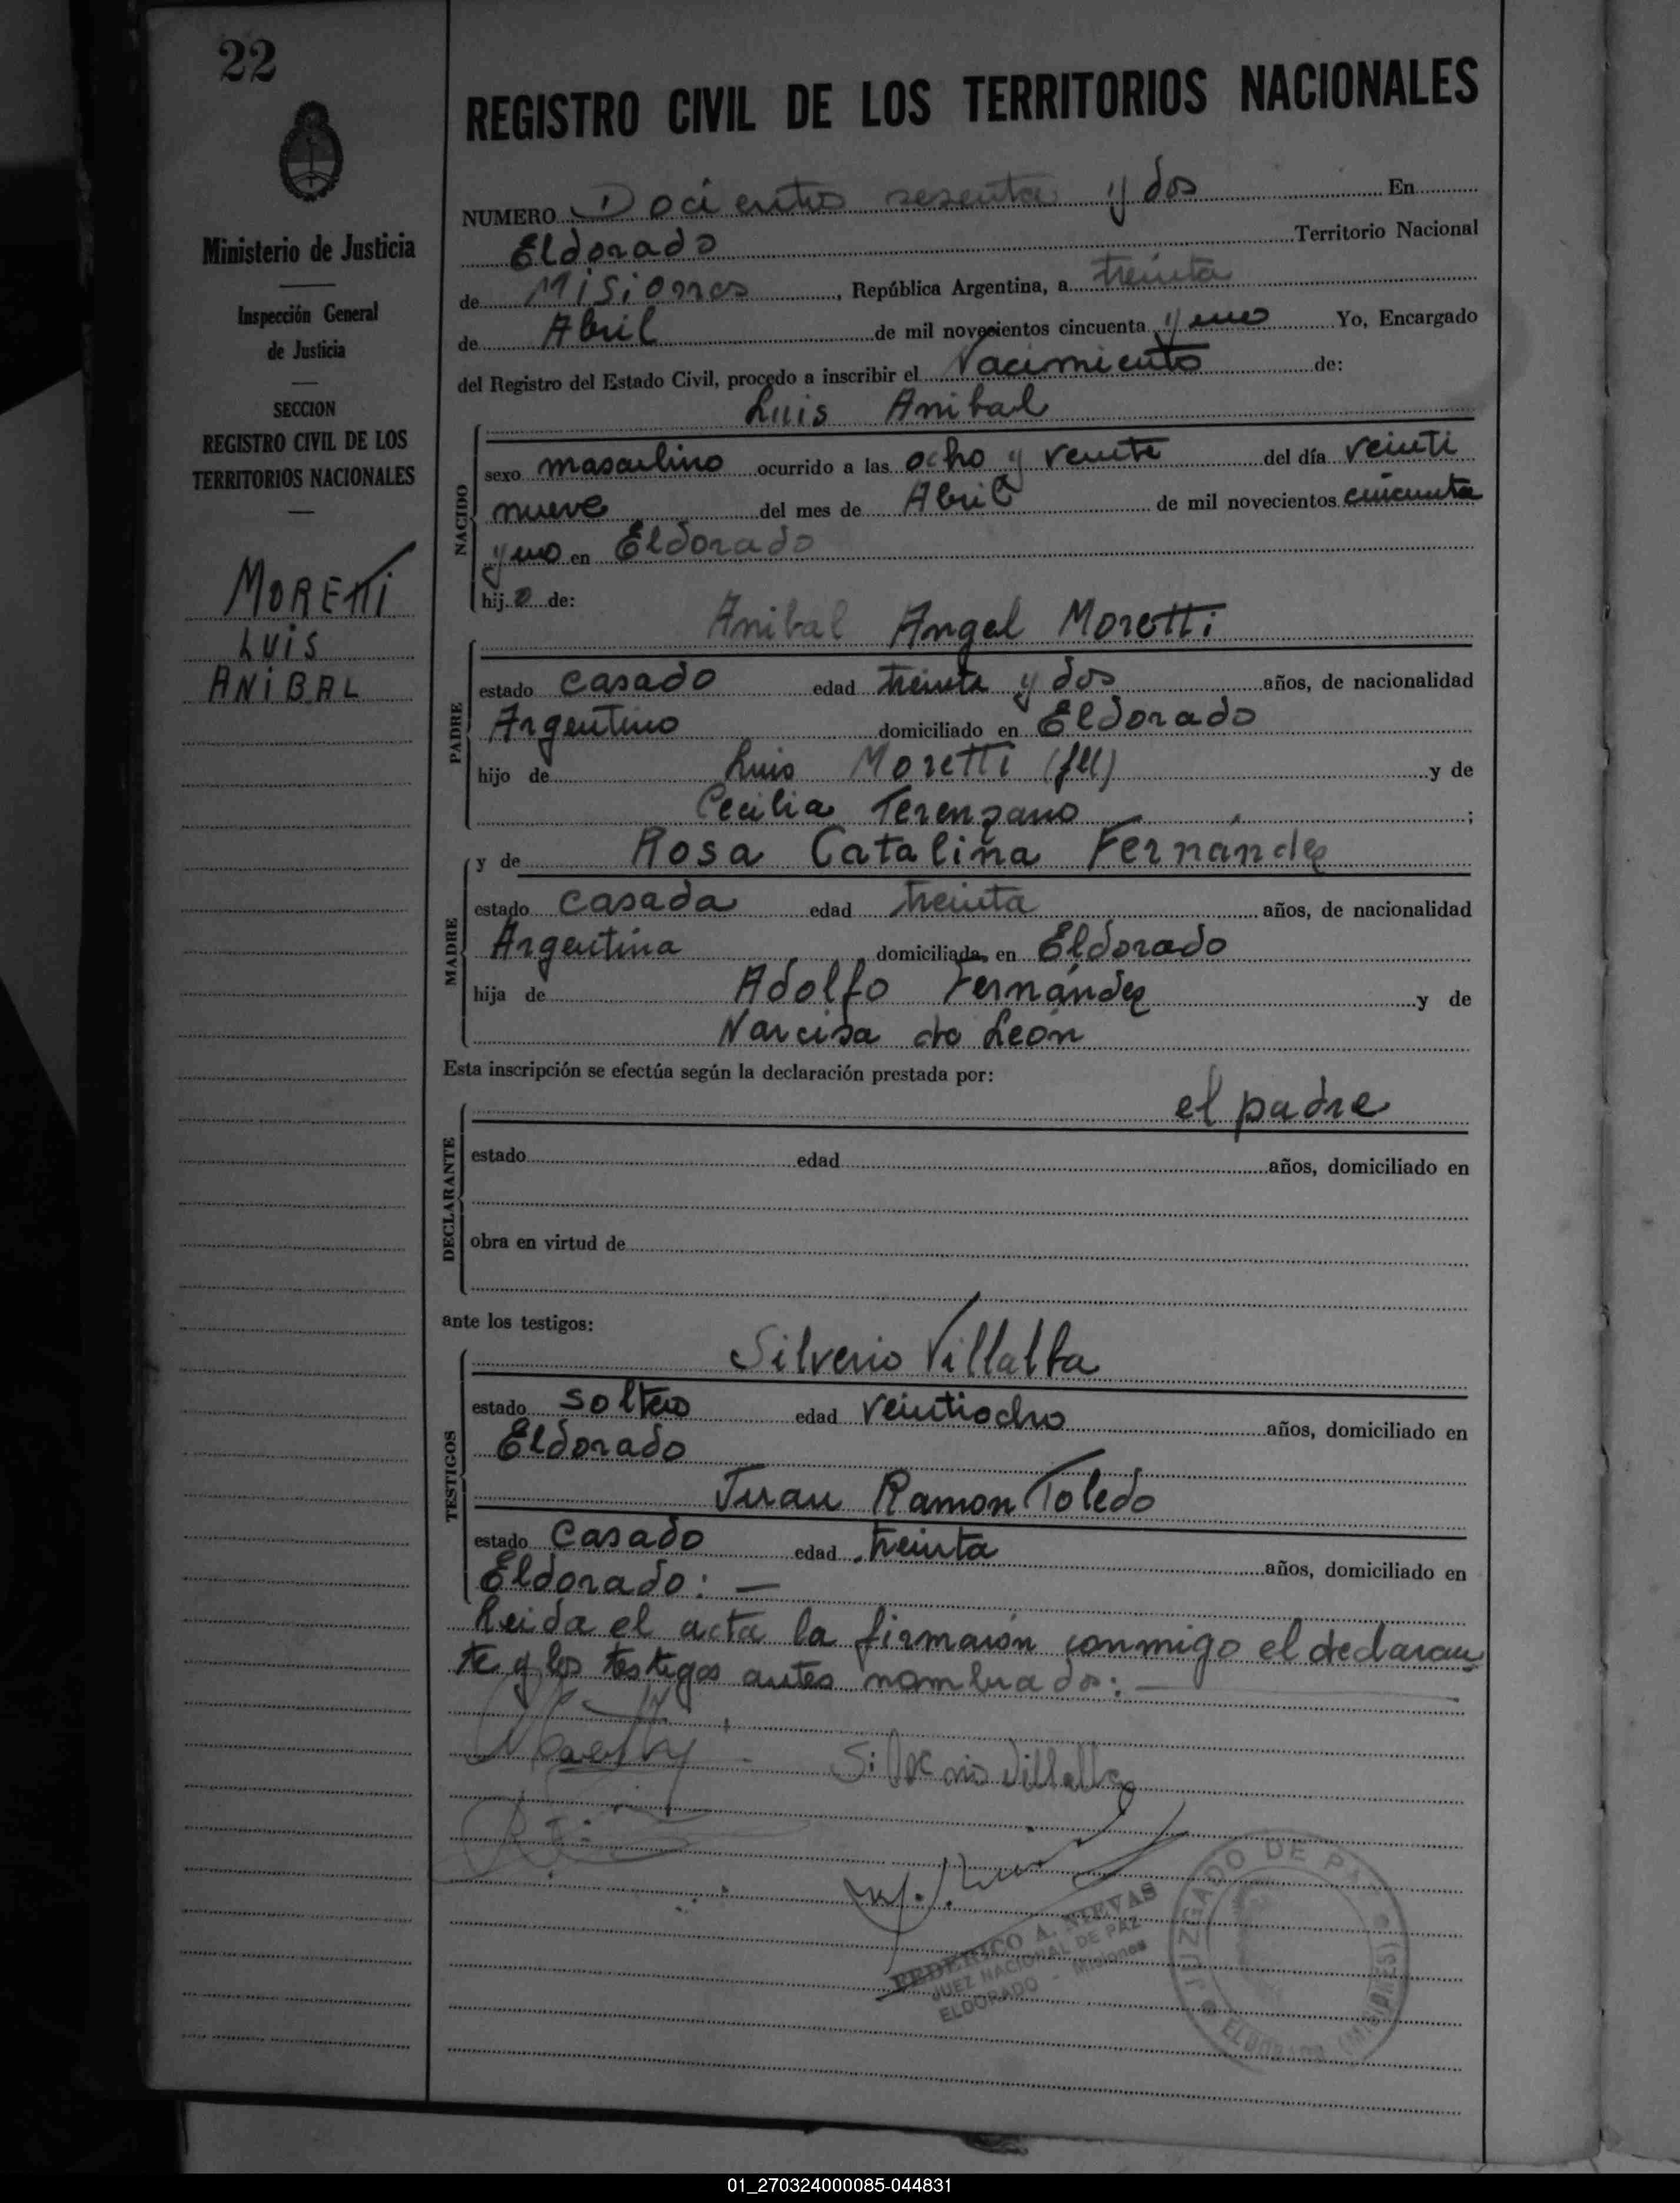 22
REGISTRO CIVIL DE LOS TERRITORIOS NACIONALES
Ministerio de Justicia
Inspección General
de Justicia
SECCION
REGISTRO CIVIL DE LOS
TERRITORIOS NACIONALES
MORETTI
LUIS
ANIBAL
NUMERO Docientos sesenta y dos En
Eldorado Territorio Nacional
de Misiones, República Argentina, a treinta
de Abril de mil novecientos cincuenta y uno Yo, Encargado
del Registro del Estado Civil, procedo a inscribir el Nacimiento de:
Luis Anibal
NACIDO
sexo masculino ocurrido a las ocho y veinte del día veinti
nueve del mes de Abril de mil novecientos cincuenta
y uno en Eldorado
hijo de:
Anibal Angel Moretti
PADRE
estado casado edad treinta y dos años, de nacionalidad
Argentino domiciliado en Eldorado
hijo de Luis Moretti (fll) y de
Cecilia Terenzano;
MADRE
y de Rosa Catalina Fernández
estado casada edad treinta años, de nacionalidad
Argentina domiciliada en Eldorado
hija de Adolfo Fernandez y de
Narcisa de León
Esta inscripción se efectúa según la declaración prestada por:
el padre
DECLARANTE
estado edad años, domiciliado en
obra en virtud de
ante los testigos:
Silverio Villalba
TESTIGOS
estado soltero edad veintiocho años, domiciliado en
Eldorado
Juan Ramon Toledo
estado casado edad treinta años, domiciliado en
Eldorado: —
Leida el acta la firmaron conmigo el declaran
te y los testigos antes nombrados: —
Silverio Villalba
FEDERICO A. NIEVAS
JUEZ NACIONAL DE PAZ
ELDORADO - Misiones
JUZGADO DE PAZ
ELDORADO (MISIONES)
01_270324000085-044831